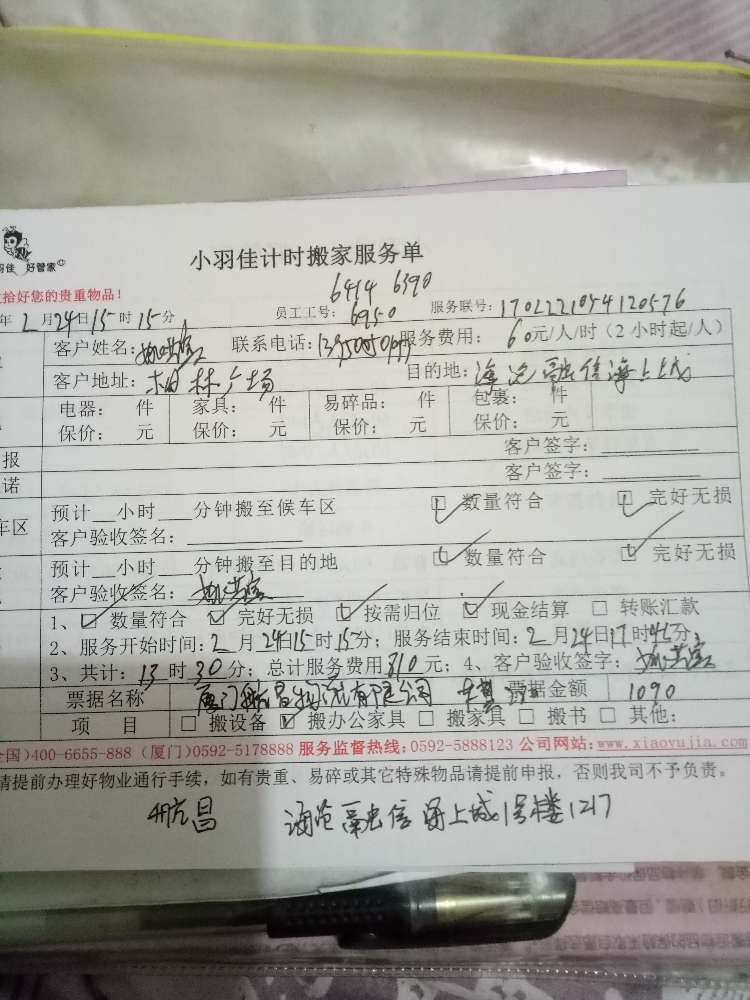 羽佳 好管家
小羽佳计时搬家服务单
拾好您的贵重物品！
6414 6390
年 2 月 24 日 15 时 15 分 员工工号： 6950 服务联号：1702221054120576
客户姓名： 联系电话： 服务费用： 60元/人/时（2小时起/人）
客户地址：柏林广场 目的地：海沧融信海上城
电器： 件 家具： 件 易碎品： 件 包裹： 件
保价： 元 保价： 元 保价： 元 保价： 元
报 客户签字：
诺 客户签字：
预计 小时 分钟搬至候车区 数量符合 完好无损
车区 客户验收签名：
预计 小时 分钟搬至目的地 数量符合 完好无损
客户验收签名：
1、☑ 数量符合 ☑ 完好无损 ☑ 按需归位 ☑ 现金结算 □ 转账汇款
2、服务开始时间：2 月 24 日 15 时 15 分；服务结束时间：2 月 24 日 17 时 45 分，
3、共计：13 时 30 分；总计服务费用 810 元；4、客户验收签字：
票据名称 厦门 昌物流有限公司 票据金额 1090
项 目 □ 搬设备 ☑ 搬办公家具 □ 搬家具 □ 搬书 □ 其他：
全国）400-6655-888（厦门）0592-5178888 服务监督热线：0592-5888123 公司网站：www.xiaoyujia.com
请提前办理好物业通行手续，如有贵重、易碎或其它特殊物品请提前申报，否则我司不予负责。
昌 海沧融信海上城1号楼1217